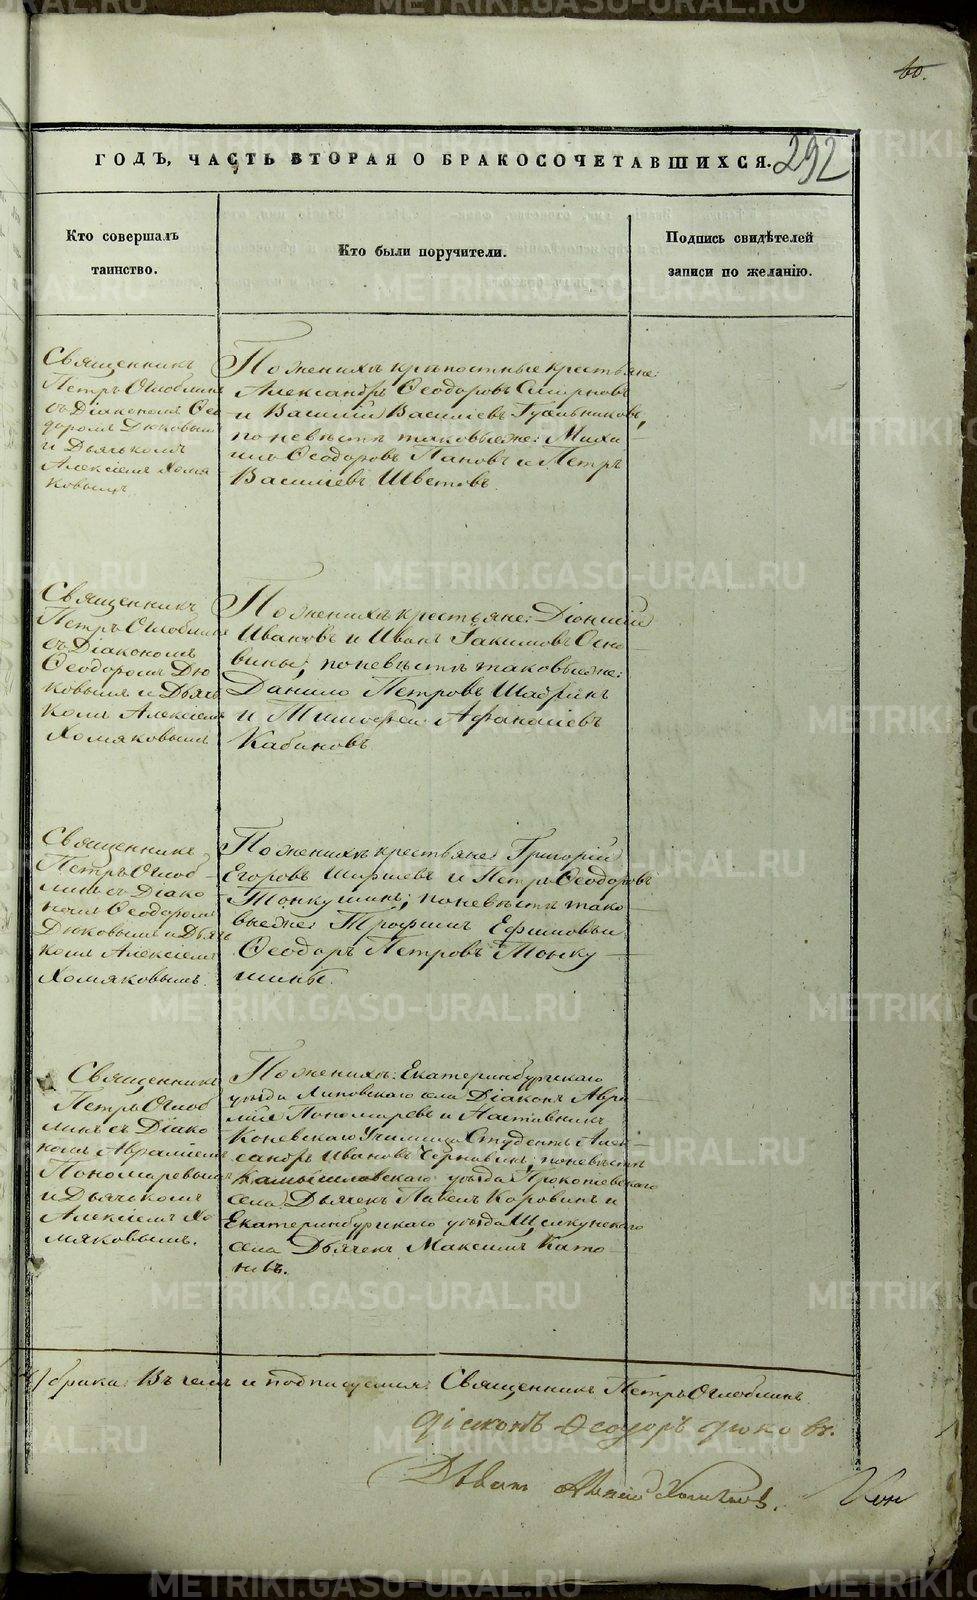 60.
ГОДЪ, ЧАСТЬ ВТОРАЯ О БРАКОСОЧЕТАВШИХСЯ.
292
Кто совершалъ
таинство.
Кто были поручители.
Подпись свидѣтелей
записи по желанію.
Священникъ
Петръ Оглоблинъ
съ Діакономъ Ѳео
доромъ Дюковым
и Дьячькомъ
Алексіемъ Хомя
ковымъ
По женихѣ крѣпостные крестьяне:
Александръ Ѳеодоровъ Смирновъ
и Василій Васильевъ Гусельниковъ,
по невѣстѣ таковые же: Миха
илъ Ѳеодоровъ Пановъ и Петръ
Васильевъ Шветовъ.
Священникъ
Петръ Оглоблинъ
съ Діакономъ
Ѳеодоромъ Дю
ковымъ и Дьяч
комъ Алексіемъ
Хомяковымъ
По женихѣ крестьяне: Діонисій
Ивановъ и Иванъ Іакимовъ Осно
вины; по невѣстѣ таковые же:
Данило Петровъ Шабринъ
и Тимофей Афанасіевъ
Кабановъ
Священникъ
Петръ Оглоб
линъ съ Діако
номъ Ѳеодоромъ
Дюковымъ и Дьяч
комъ Алексіемъ
Хомяковымъ.
По женихѣ крестьяне: Григорій
Егоровъ Ширшевъ и Петръ Ѳеодоровъ
Тонкушинъ; по невѣстѣ тако
вые же: Трофимъ Ефимовъ и
Ѳеодоръ Петровъ Тонку
шинъ.
Священникъ
Петръ Оглоб
линъ съ Діако
номъ Авраміемъ
Пономаревымъ
и Дьячькомъ
Алексіемъ Хо
мяковымъ.
По женихѣ: Екатеринбургскаго
уѣзда Липовскаго села Діаконъ Авра
мій Пономаревъ и Наставникъ
Коневскаго Училища Студентъ Алек
сандръ Ивановъ Черновинъ; по невѣстѣ
Камышловскаго уѣзда Прокопьевскаго
села Дьячекъ Павелъ Коровинъ и
Екатеринбургскаго уѣзда Щелкунскаго
села Дьячекъ Максимъ Като
нивъ.
брака. Въ чемъ и подписуемся: Священникъ Петръ Оглоблинъ
Діаконъ Ѳеодоръ Дюковъ.
Дьячекъ Алексій Хомяковъ.
METRIKI.GASO-URAL.RU